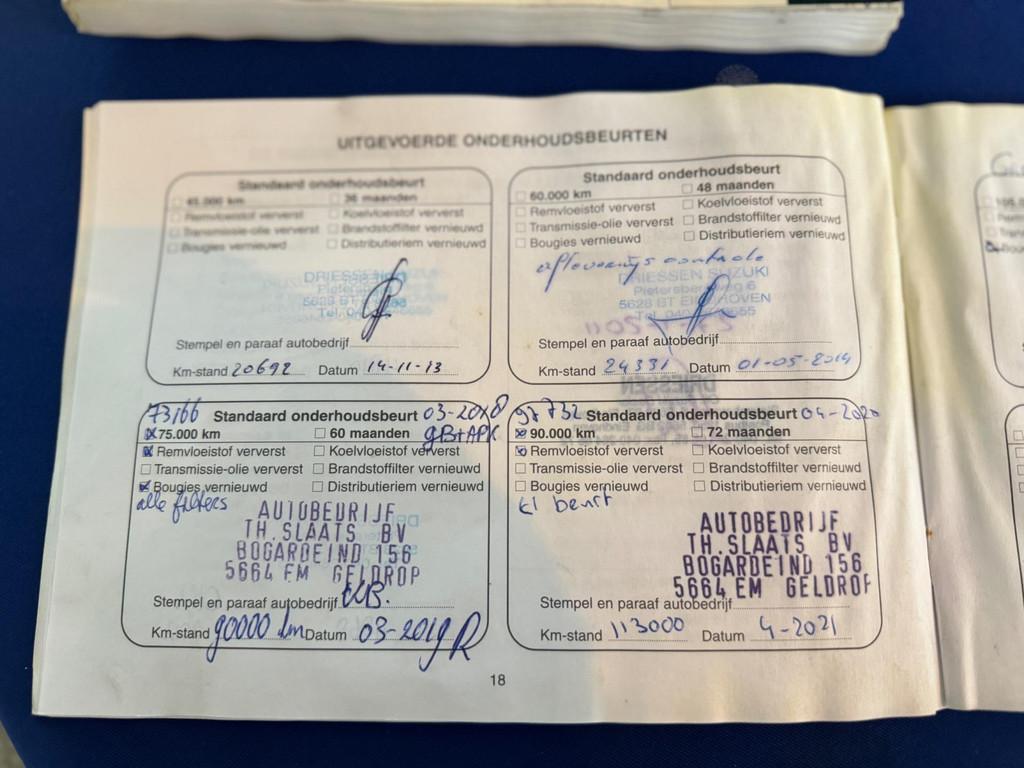 UITGEVOERDE ONDERHOUDSBEURTEN
Standaard onderhoudsbeurt
45.000 km 36 maanden
Remvloeistof ververst Koelvloeistof ververst
Transmissie-olie ververst Brandstoffilter vernieuwd
Bougies vernieuwd Distributieriem vernieuwd
DRIESSEN
5628 BT
Tel. 040
Stempel en paraaf autobedrijf
Km-stand 20692 Datum 14-11-13
Standaard onderhoudsbeurt
60.000 km 48 maanden
Remvloeistof ververst Koelvloeistof ververst
Transmissie-olie ververst Brandstoffilter vernieuwd
Bougies vernieuwd Distributieriem vernieuwd
afleverings controle
DRIESSEN SUZUKI
6
5628 BT EINDHOVEN
Tel. 040
Stempel en paraaf autobedrijf
Km-stand 24331 Datum 01-05-2014
73166 Standaard onderhoudsbeurt 03-2018
75.000 km 60 maanden gB+APK
Remvloeistof ververst Koelvloeistof ververst
Transmissie-olie ververst Brandstoffilter vernieuwd
Bougies vernieuwd Distributieriem vernieuwd
alle filters
AUTOBEDRIJF
TH.SLAATS BV
BOGARDEIND 156
5664 EM GELDROP
Stempel en paraaf autobedrijf
Km-stand 90000 km Datum 03-2019
97732 Standaard onderhoudsbeurt 04-2020
90.000 km 72 maanden
Remvloeistof ververst Koelvloeistof ververst
Transmissie-olie ververst Brandstoffilter vernieuwd
Bougies vernieuwd Distributieriem vernieuwd
kl beurt
AUTOBEDRIJF
TH.SLAATS BV
BOGARDEIND 156
5664 EM GELDROP
Stempel en paraaf autobedrijf
Km-stand 113000 Datum 4-2021
18